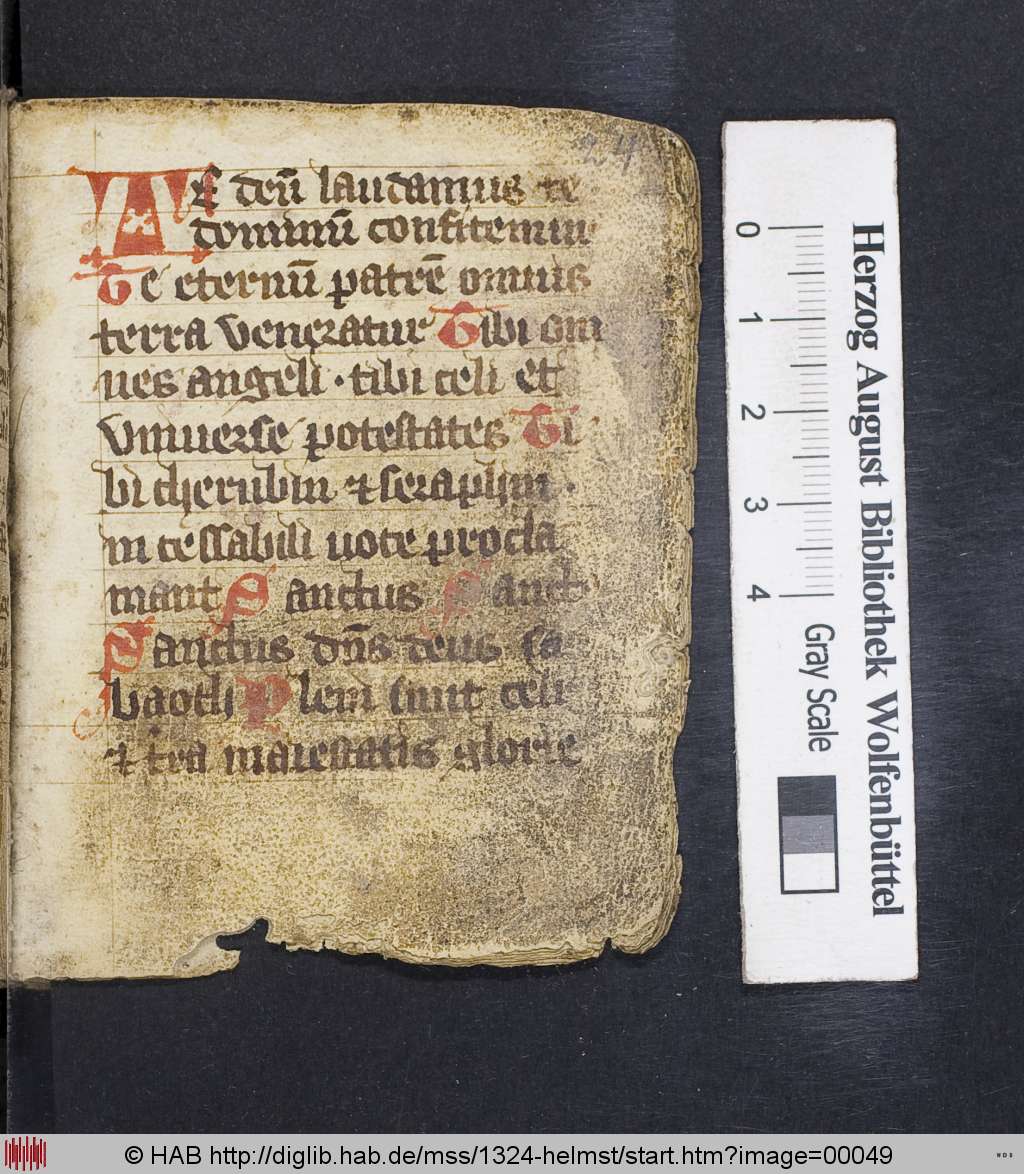 24
Te deū laudamus te
dominū confitemur
Te eternū patrē omnis
terra veneratur Tibi om
nes angeli · tibi celi et
vniuerse potestates Ti
bi cherubin ⁊ seraphin ·
in cessabili uoce procla
mant Sanctus Sanct
Sanctus dn̄s deus sa
baoth Pleni sunt celi
⁊ t̄ra maiestatis glorie
0
1
2
3
4
Gray Scale
Herzog August Bibliothek Wolfenbüttel
© HAB http://diglib.hab.de/mss/1324-helmst/start.htm?image=00049
WDB